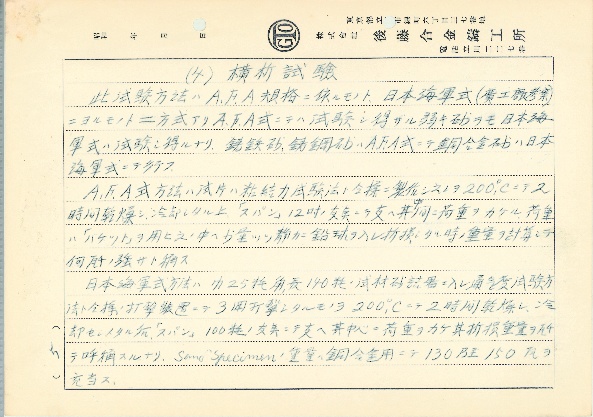 昭和 年 月 日
株式会社 後藤合金鋳工所
(4) 横折試験
此試験方法ハA.F.A規格ニ依ルモノト、日本海軍式
ニヨルモノト二方式アリA.F.A式ニテハ試験シ得ザル弱キ砂ヲモ日本海
軍式ハ試験シ得ルナリ. 鋳鉄砂、鋳鋼砂ハA.F.A式ニテ銅合金砂ハ日本
海軍式ニテ行フ
A.F.A式方法ハ試片ハ粘結力試験法ト同様ニ製作シコレヲ200°Cニテ2
時間乾燥シ冷却シタル上「スパン」12吋ノ支点ニテ支ヘ其中間ニ荷重ヲカケル荷重
ハ「バケット」ヲ用ヒ之ノ中ヘ少量ヅツ静カニ鉛球ヲ入レ折損シタル時ノ重量ヲ計算シテ
何听ノ強サト称ス
日本海軍式方法ハ 巾25粍角長140粍ノ試材砂詰器ニ入レ通気度試験方
法ト同様ノ打撃装置ニテ3回打撃シタルモノヲ200°Cニテ2時間乾燥シ、冷
却セシメタル后「スパン」100粍ノ支点ニテ支ヘ其中心ニ荷重ヲカケ其折損重量ヲ以
テ呼称スルナリ、Sand "Specimen"ノ重量ハ銅合金用ニテ130乃至150瓦ヲ
充当ス.
(5)